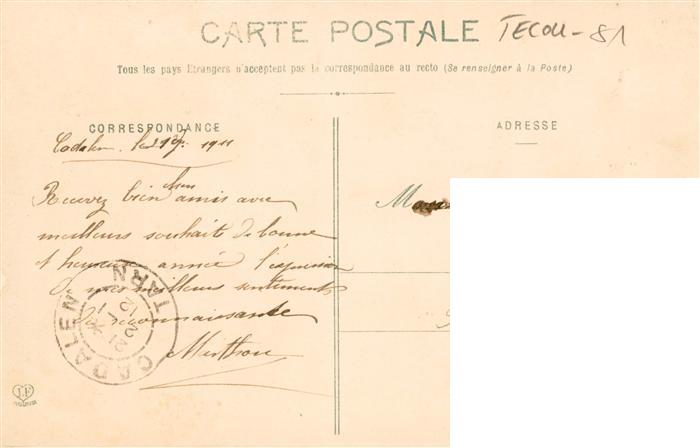 CARTE POSTALE TECOU-81
Tous les pays Etrangers n'acceptent pas la correspondance au recto (Se renseigner à la Poste)
CORRESPONDANCE
ADRESSE
Cadalen le 1911
Recevez bien chers amis avec
meilleurs souhaits de bonne
et heureuse année l'expression
de mes meilleurs sentiments
de reconnaissante
CADALEN
TARN